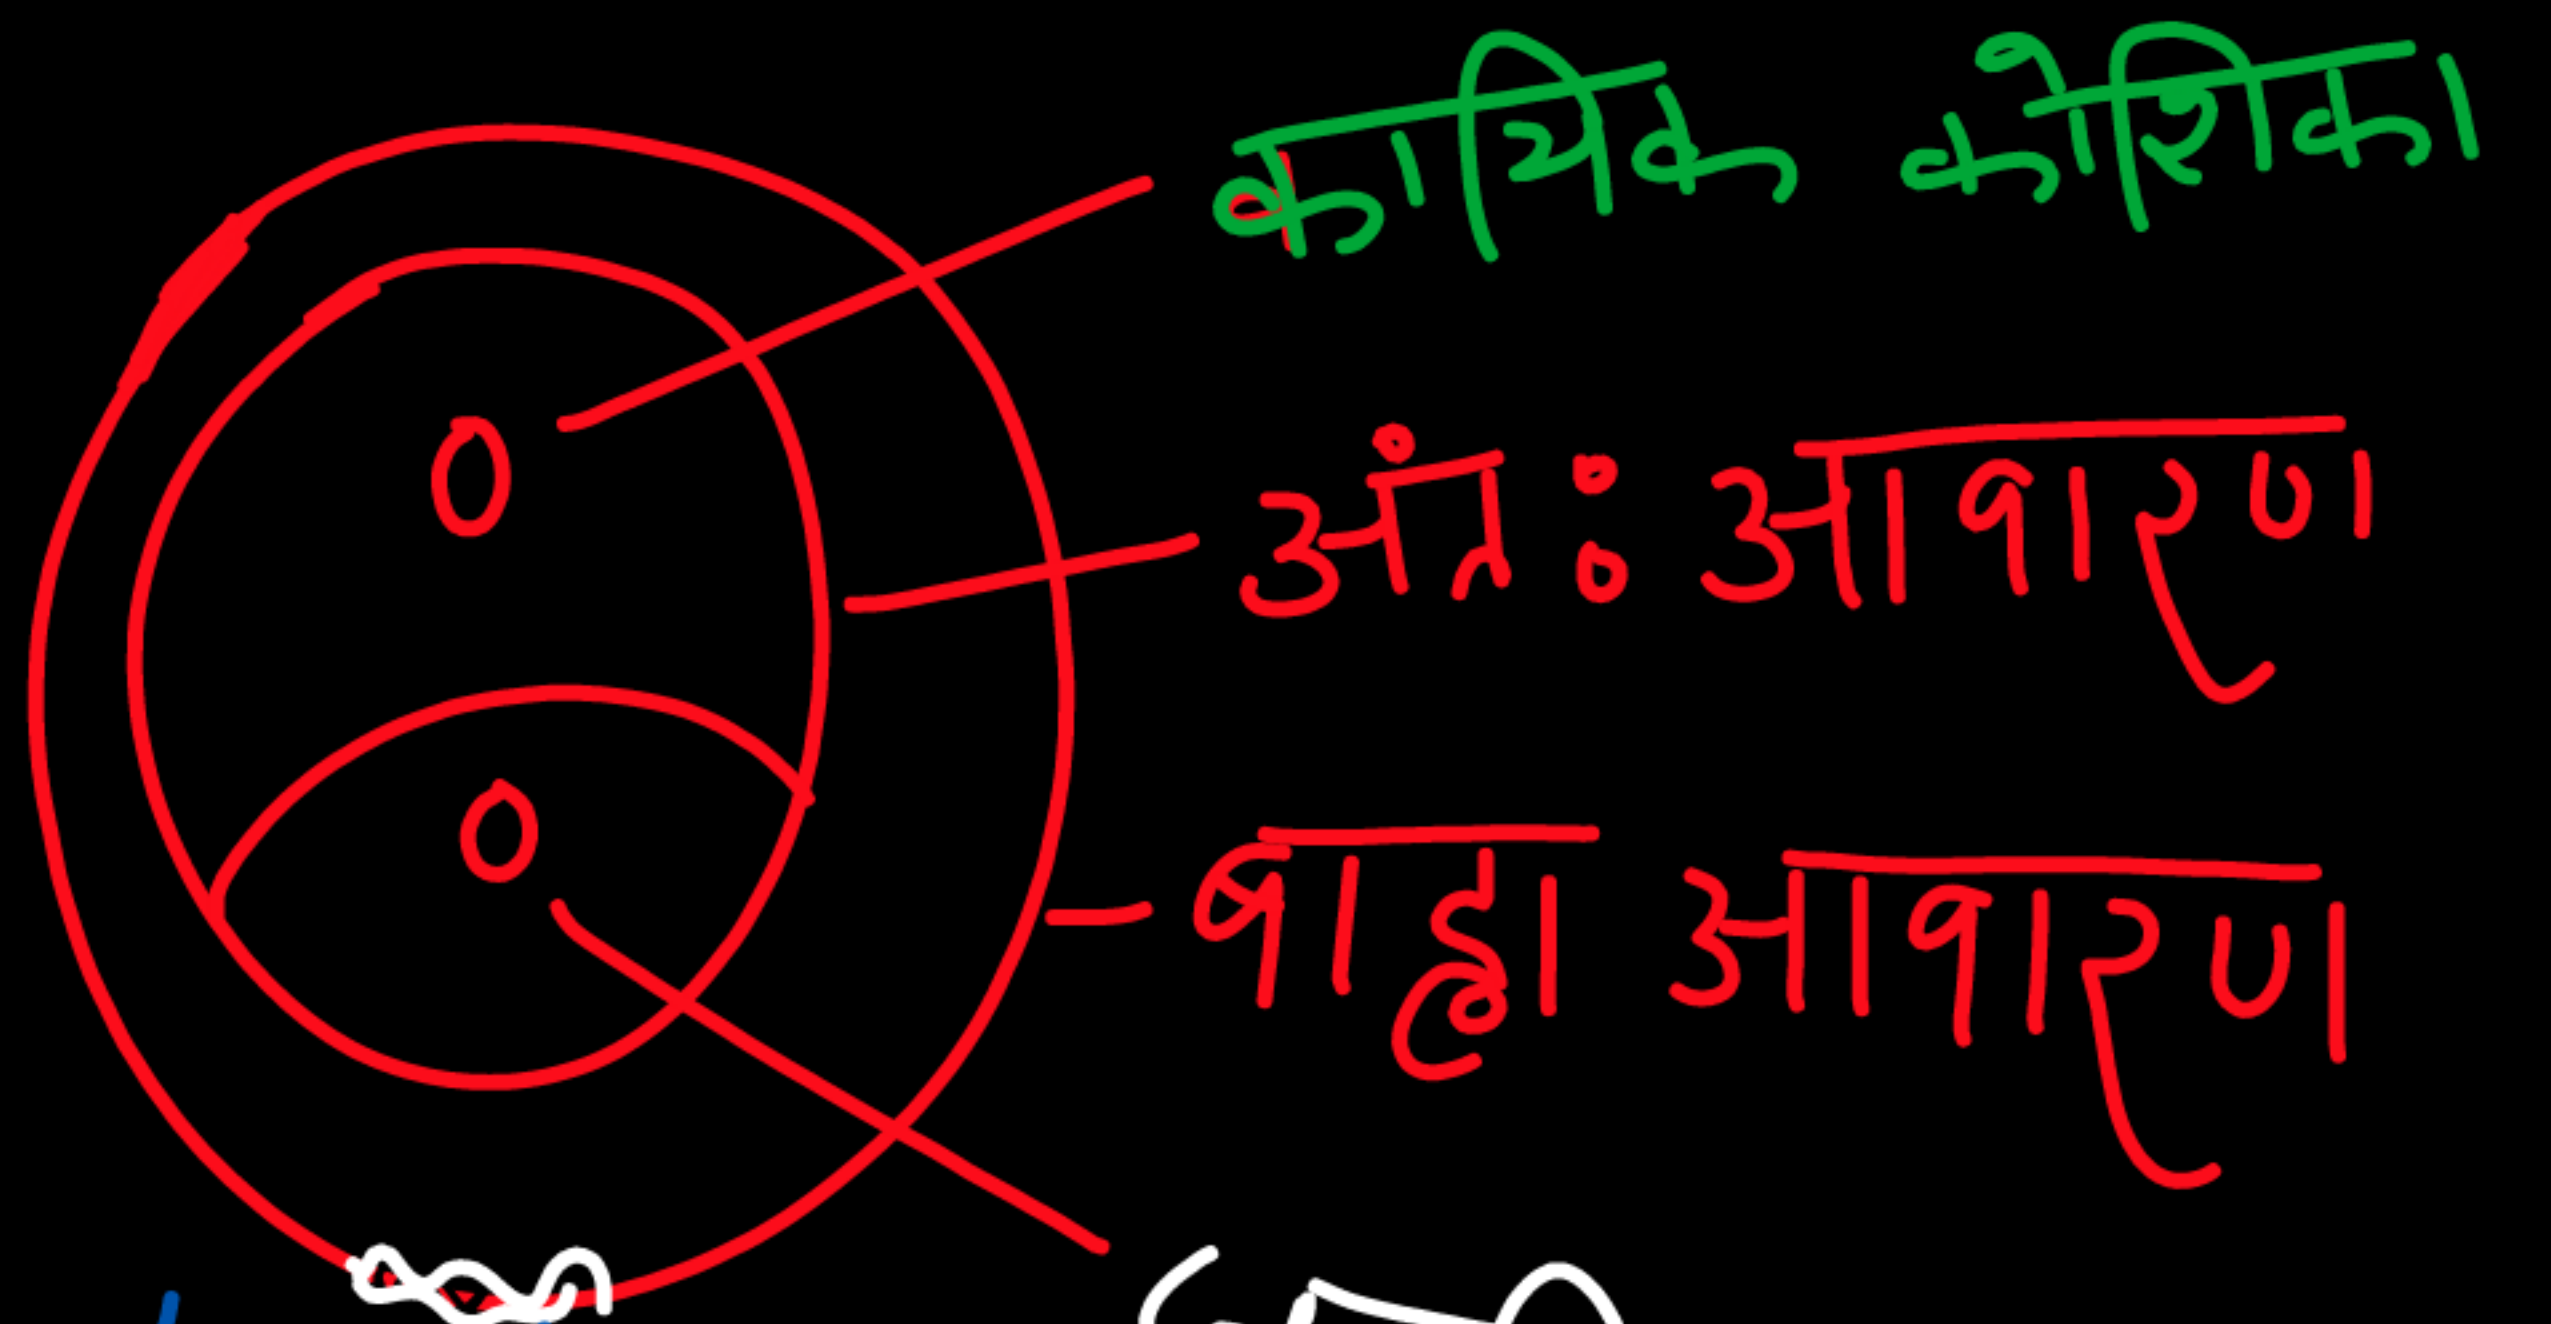 कायिक कोशिका
अंत: आवारण
बाह्य आवारण